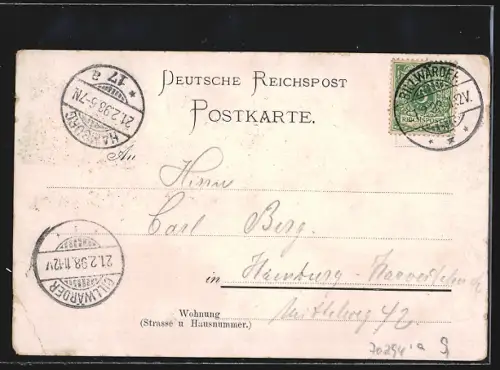 DEUTSCHE REICHSPOST
POSTKARTE.
BILLWÄRDER
12V.
HAMBURG
21.2.98.6-7N.
17 a
An
Herrn
Carl Berg.
in Hamburg-
Mittelweg 42
Wohnung
(Strasse u Hausnummer.)
BILLWÄRDER
21.2.98.11-12V